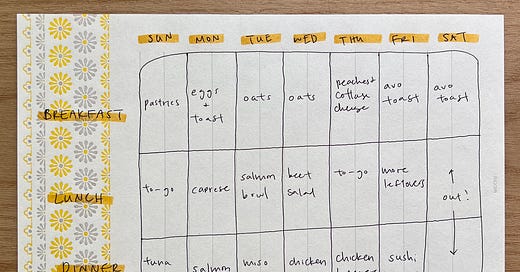 SUN MON TUE WED THU FRI SAT
BREAKFAST
pastries
eggs
+
toast
oats
oats
peaches +
cottage
cheese
avo
toast
avo
toast
LUNCH
to-go
caprese
salmon
bowl
beet
salad
to-go
more
leftovers
out!
DINNER
tuna
salmon
miso
chicken
chicken
sushi